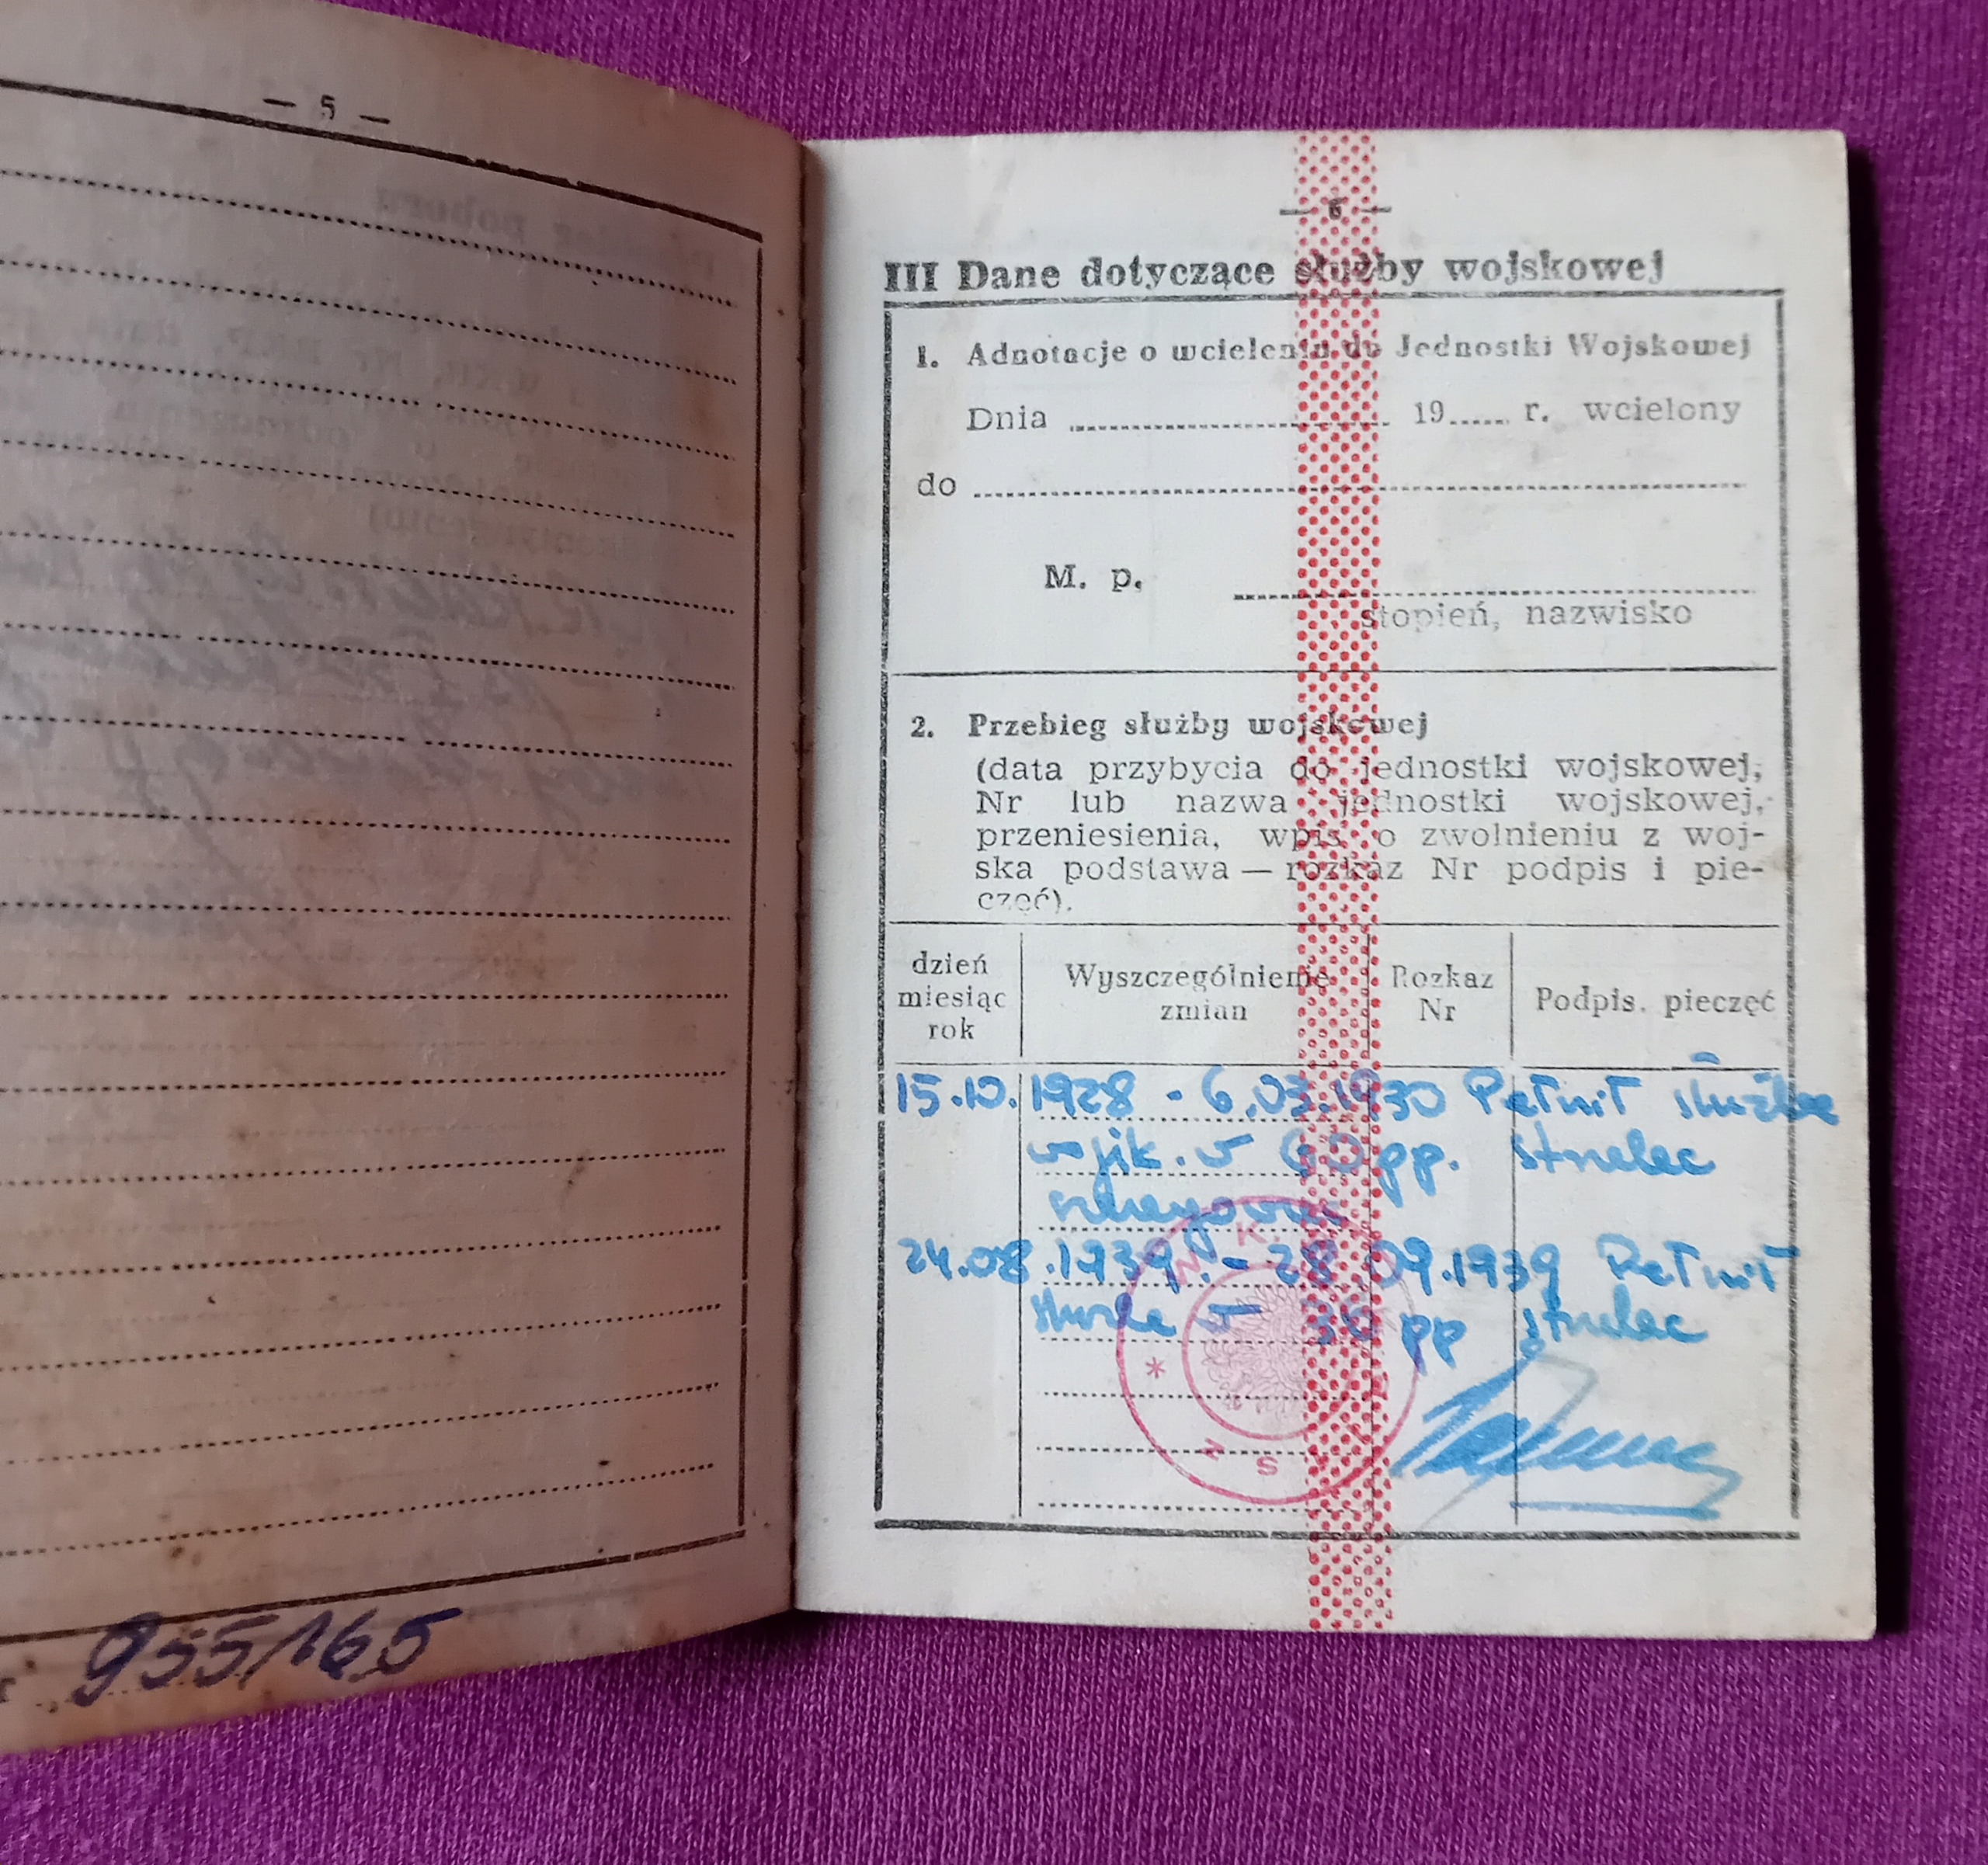 — 5 —
955/165
— 6 —
III Dane dotyczące służby wojskowej
1. Adnotacje o wcieleniu do Jednostki Wojskowej
Dnia ........ 19..... r. wcielony
do ........
M. p.
stopień, nazwisko
2. Przebieg służby wojskowej
(data przybycia do jednostki wojskowej,
Nr lub nazwa jednostki wojskowej,
przeniesienia, wpis o zwolnieniu z woj-
ska podstawa — rozkaz Nr podpis i pie-
częć).
dzień miesiąc rok
Wyszczególnienie zmian
Rozkaz Nr
Podpis, pieczęć
15.10.1928 - 6.03.1930 Pełnił służbę
wojsk. w 60 pp. strzelec
24.08.1939 - 28.09.1939 Pełnił
służbę w 30 pp strzelec